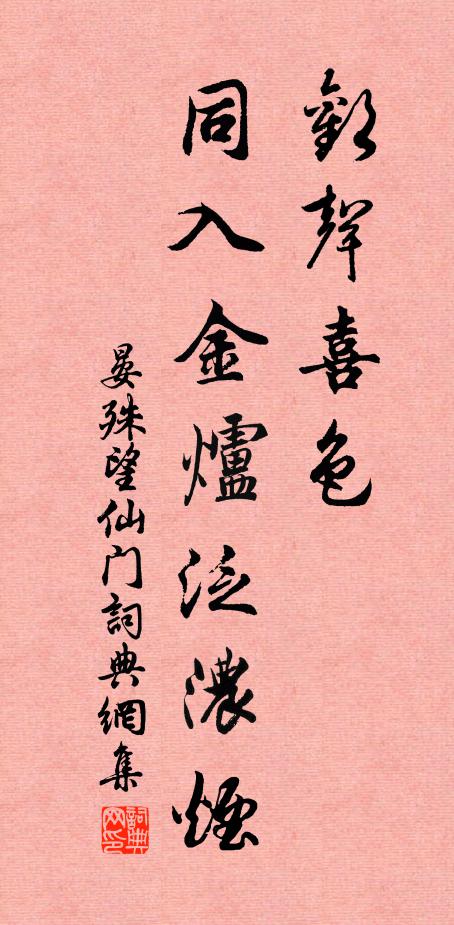 歡聲喜色
同入金爐泛濃煙
晏殊望仙门詞典網集
詞典
网印